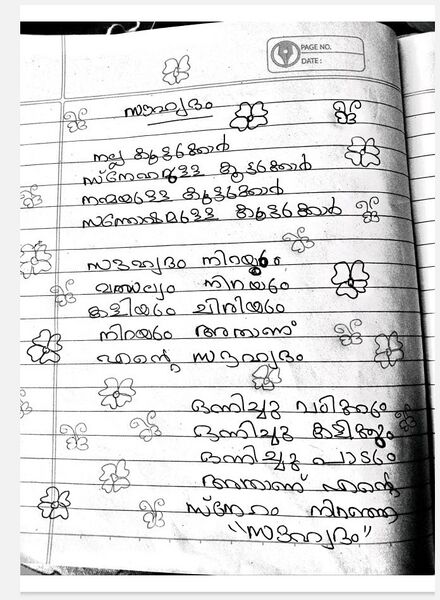 PAGE NO.
DATE :
സൗഹൃദം
നല്ല കൂട്ടുക്കാർ
സ്നേഹമുള്ള കൂട്ടുക്കാർ
നന്മയുള്ള കൂട്ടുക്കാർ
സന്തോഷമുള്ള കൂട്ടുക്കാർ
സൗഹൃദം നിറയും
വത്സല്യം നിറയും
കളിയും ചിരിയും
നിറയും അതാണ്
എന്റെ സൗഹൃദം
ഒന്നിച്ചു പഠിക്കും
ഒന്നിച്ചു കളിക്കും
ഒന്നിച്ചു പാടും
അതാണ് എന്റെ
സ്നേഹം നിറഞ്ഞ
"സൗഹൃദം"